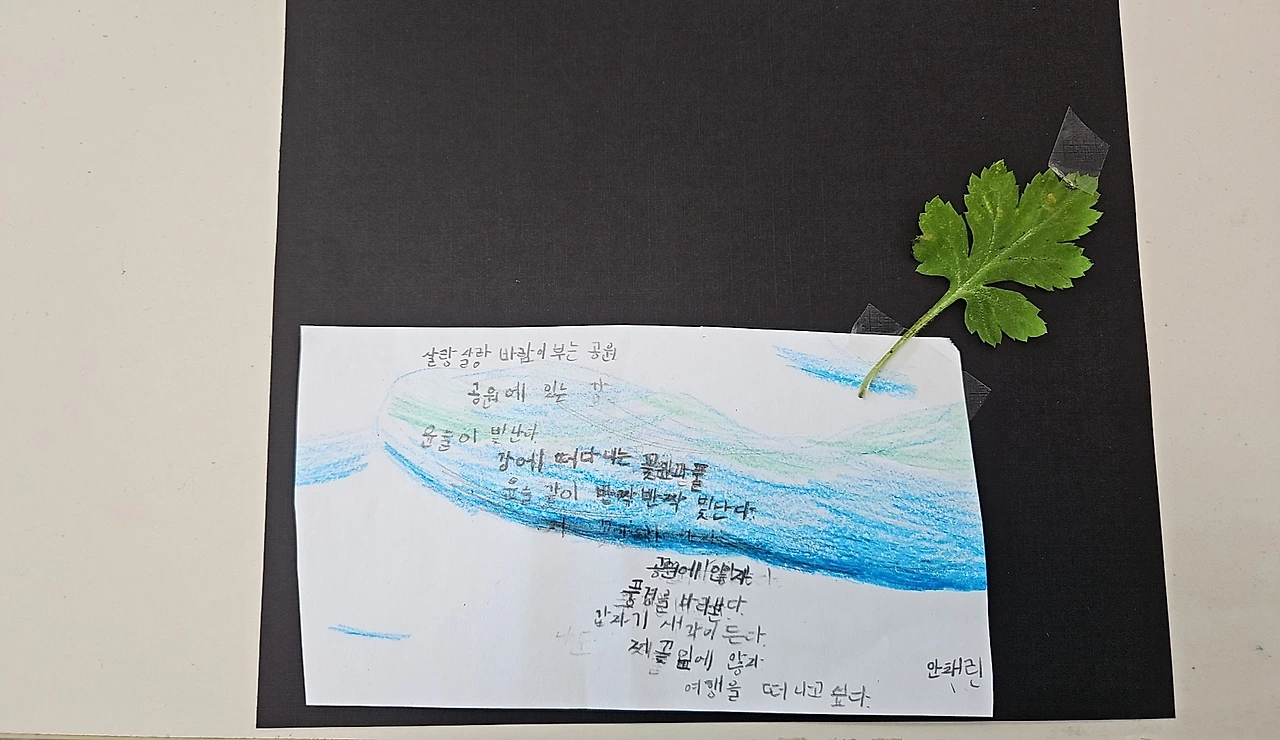 살랑살랑 바람이 부는 공원
공원에 있는 강
윤슬이 빛난다.
강에 떠다니는 꽃잎과 풀
윤슬 같이 반짝반짝 빛난다.
공원에 앉아
풍경을 바라본다.
갑자기 생각이 든다.
나도
저 꽃잎에 앉아
여행을 떠나고 싶다.
안채린